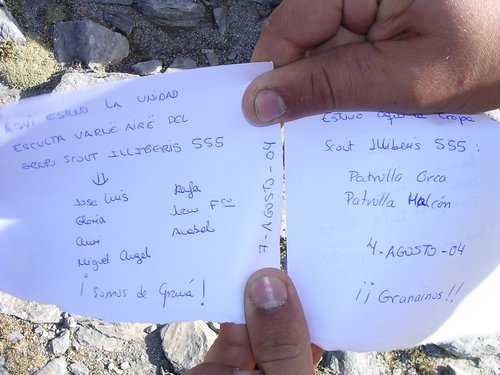 AQUÍ ESTUVO LA UNIDAD
ESCULTA VARUË AIRË DEL
GRUPO SCOUT ILLIBERIS 555
JOSE LUIS
Gloria
Miguel Angel
¡ Somos de Graná !
Rafa
Juan Fco
Mabel
7-AGOSTO-04
Estuvo aquí la Tropa
Scout Illiberis 555:
Patrulla Orca
Patrulla Halcón
4-AGOSTO-04
¡¡Granainos!!